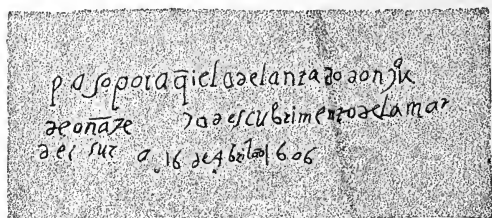 paso por aq̄i el adelantado don jua
de oñate descubrimento de la mar
del sur a 16 de Abril 1606